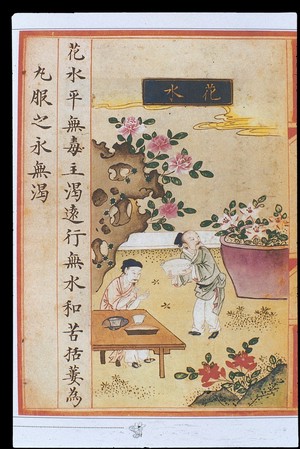 水花
花水平無毒主渴遠行無水和苦括蔞為
丸服之永無渴